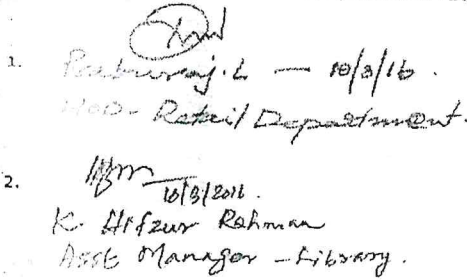 1.
Paburaj. L — 10/3/16.
HOD - Retail Department.
2.
10/3/2016.
K. Hifzur Rahman
Asst Manager - Library.